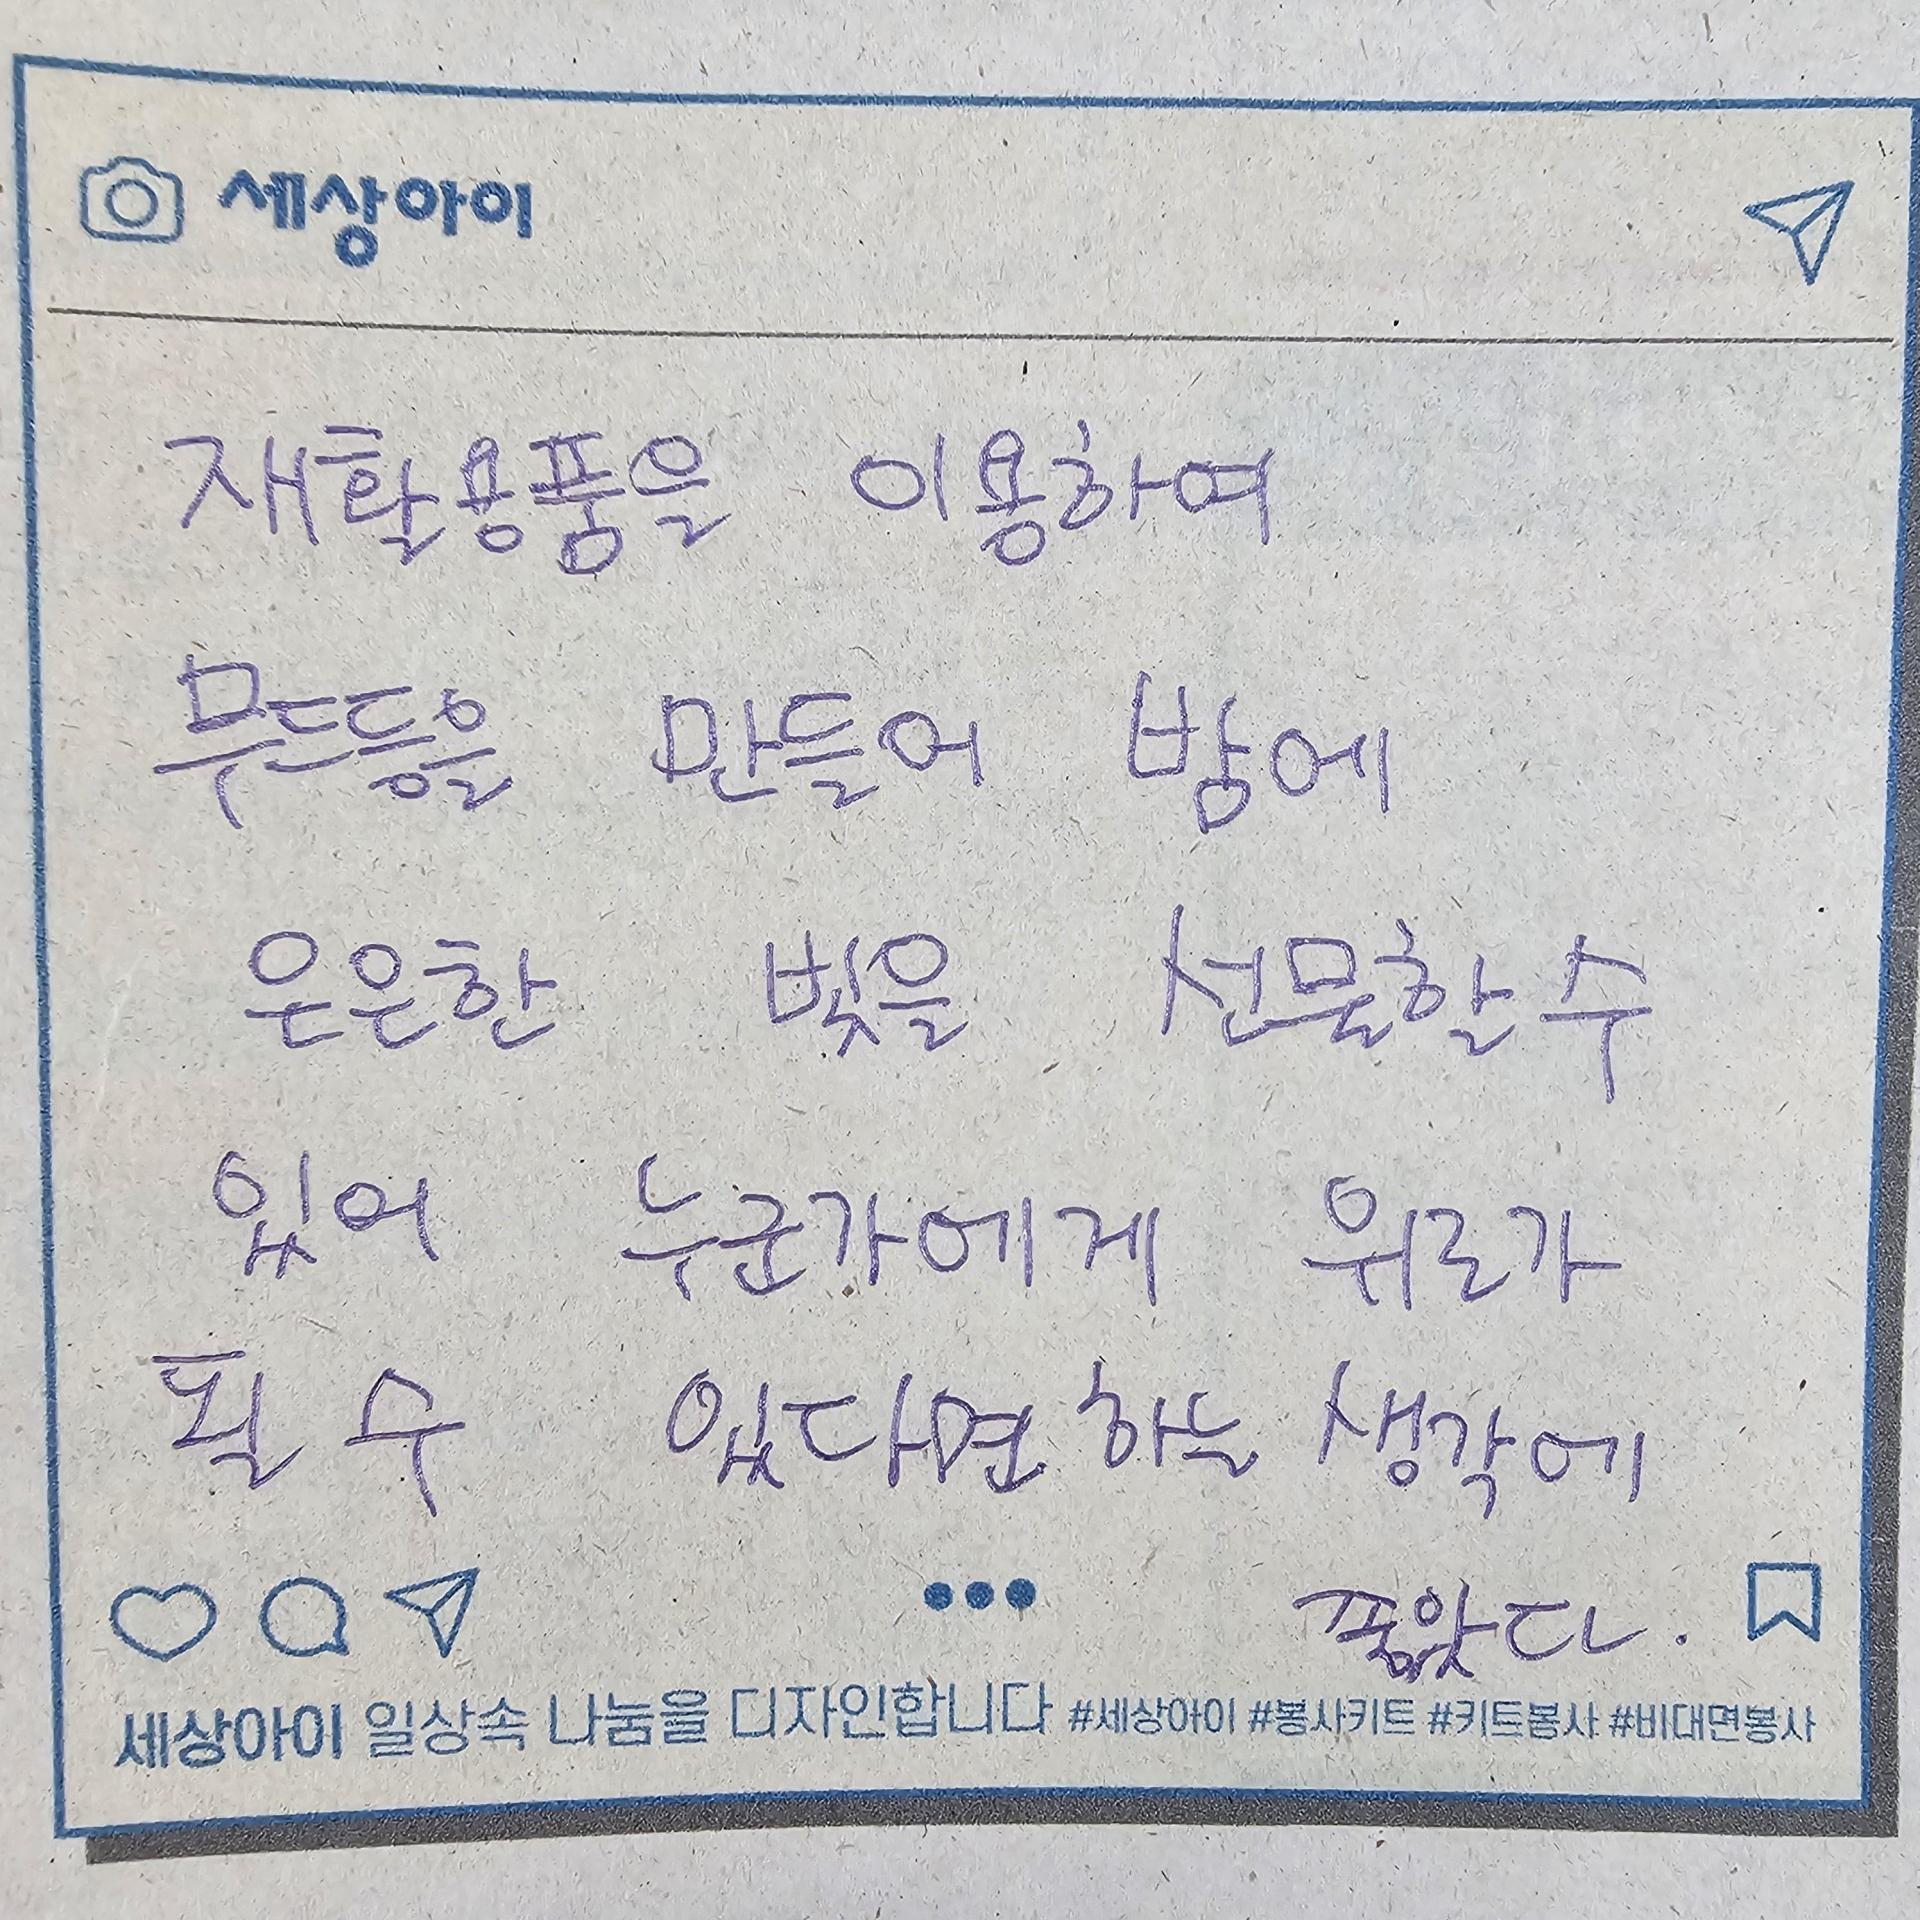 세상아이
재활용품을 이용하여
무드등을 만들어 방에
은은한 빛을 선물할 수
있어 누군가에게 위로가
될 수 있다면 하는 생각에
세상아이 일상속 나눔을 디자인합니다 #세상아이 #봉사키트 #키트봉사 #비대면봉사